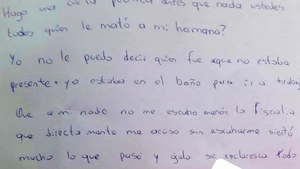 Hago una carta publica antes que nada ustedes
todos quien le mató a mi hermano?
Yo no le puedo decir quien fue aque no estaba
presente. yo estaba en el baño para ir a trabaj
Que a mi nadie no me escucho menos la Fiscalia
que directa mente me acuso sin escucharme sientó
mucho lo que pasó y ojala se esclaresca todo